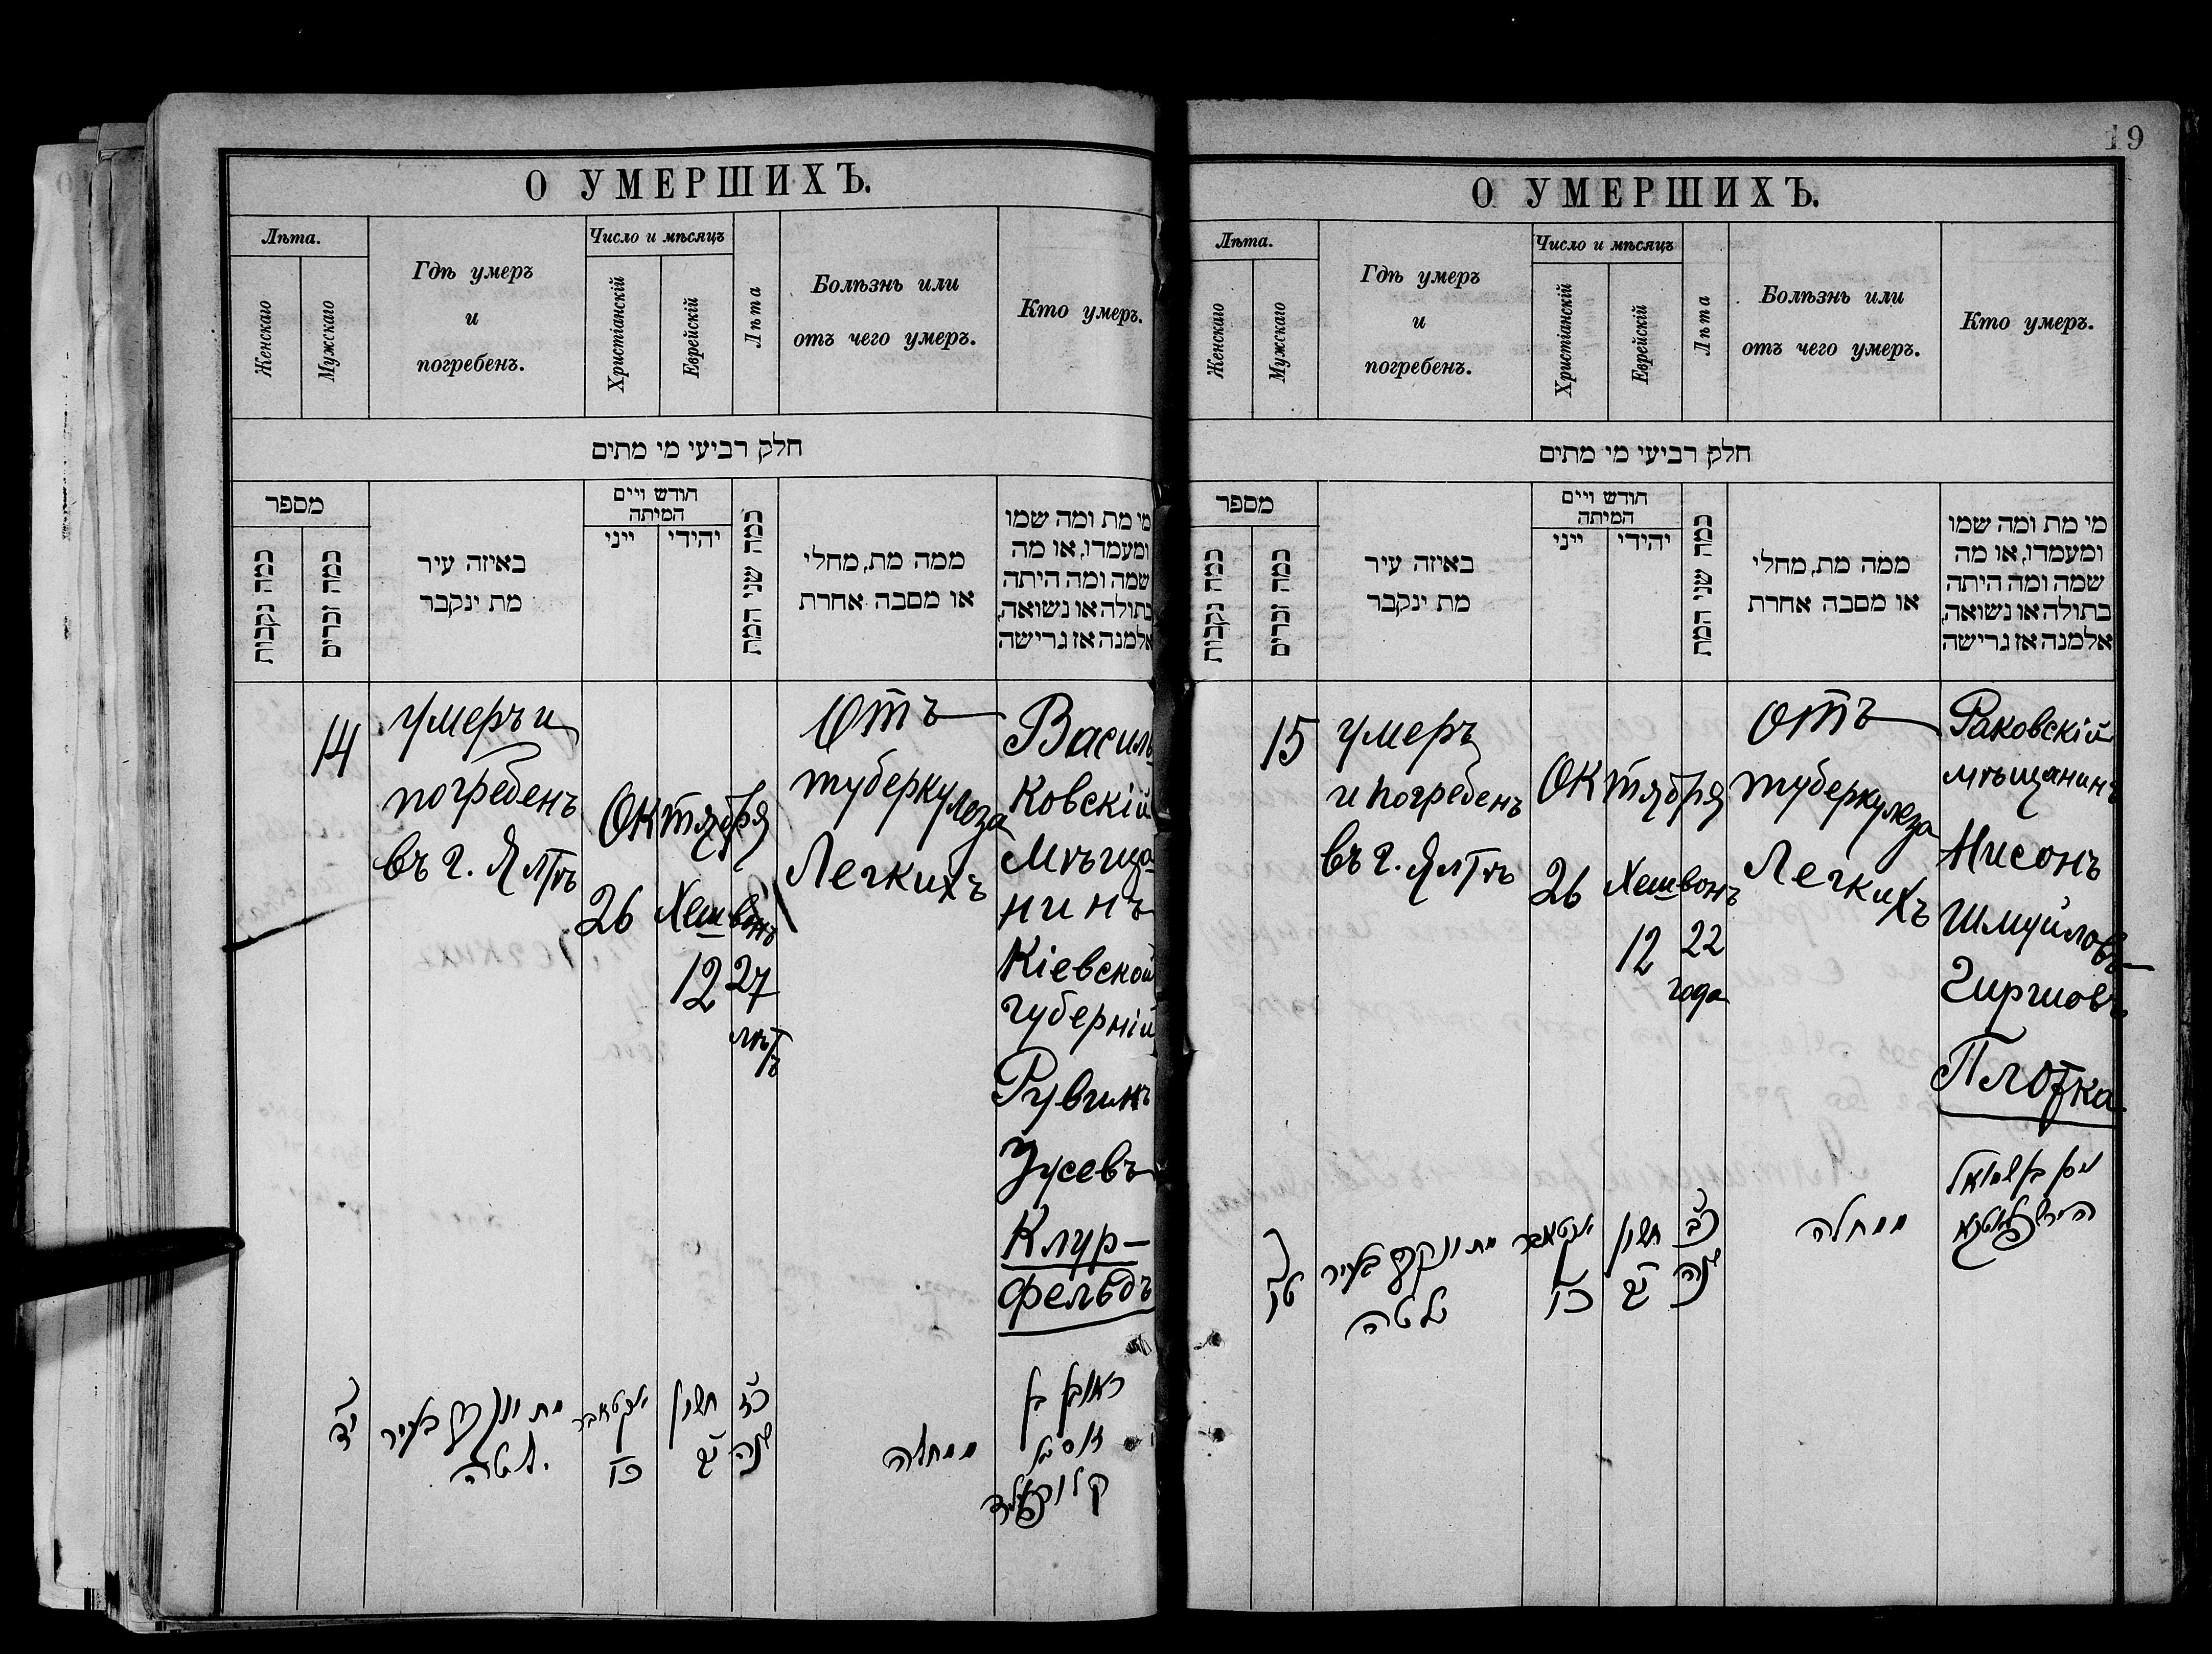 19
О УМЕРШИХЪ.
Лѣта.
Женскаго
Мужскаго
Гдѣ умеръ
и
погребенъ.
Число и мѣсяцъ
Христіанскій
Еврейскій
Лѣта
Болѣзнь или
отъ чего умеръ.
Кто умеръ.
חלק רביעי מי מתים
מספר
כמה נקבות
כמה זכרים
באיזה עיר
מת ינקבר
חודש ויים
המיתה
ייני
יהידי
כמה שני המת
ממה מת, מחלי
או מסבה אחרת
מי מת ומה שמו
ומעמדו, או מה
שמה ומה היתה
בתולה או נשואה,
אלמנה אז גרישה
14
умеръ и
погребенъ
въ г. Ялтѣ
Октября
26 Хешвонъ
12
27
лѣтъ
Отъ
туберкулеза
Легкихъ
Василь
ковскій
мѣща
нинъ
Кіевской
губерній
Рувинъ
Зусевъ
Клур-
фельдъ
י״ד
מת ונקבר בעיר
יאלטה
אקטאבר
כ״ו
חשון
י״ב
כ״ז
שנה
ממחלה
ראובן בן
זוסל
קלורפעלד
О УМЕРШИХЪ.
Лѣта.
Женскаго
Мужскаго
Гдѣ умеръ
и
погребенъ.
Число и мѣсяцъ
Христіанскій
Еврейскій
Лѣта
Болѣзнь или
отъ чего умеръ.
Кто умеръ.
חלק רביעי מי מתים
מספר
כמה נקבות
כמה זכרים
באיזה עיר
מת ינקבר
חודש ויים
המיתה
ייני
יהידי
כמה שני המת
ממה מת, מחלי
או מסבה אחרת
מי מת ומה שמו
ומעמדו, או מה
שמה ומה היתה
בתולה או נשואה,
אלמנה אז גרישה
15
умеръ
и погребенъ
въ г. Ялтѣ
Октября
26 Хешвонъ
12
22
года
отъ
туберкулеза
Легкихъ
Раковскій
мѣщанинъ
Нисонъ
Шмуйловъ
Гиршовъ
Плотка
ט״ו
מת ונקבר בעיר
יאלטה
אקטאבר
כ״ו
חשון
י״ב
כ״ב
שנה
ממחלה
ניסן בן שמואל
הירש פלאטקא